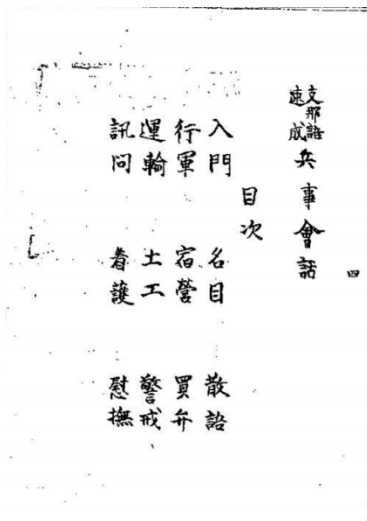 支那語速成兵事會話
四
目次
入門 名目 散語
行軍 宿營 買弁
運輸 土工 警戒
訊問 看護 慰撫